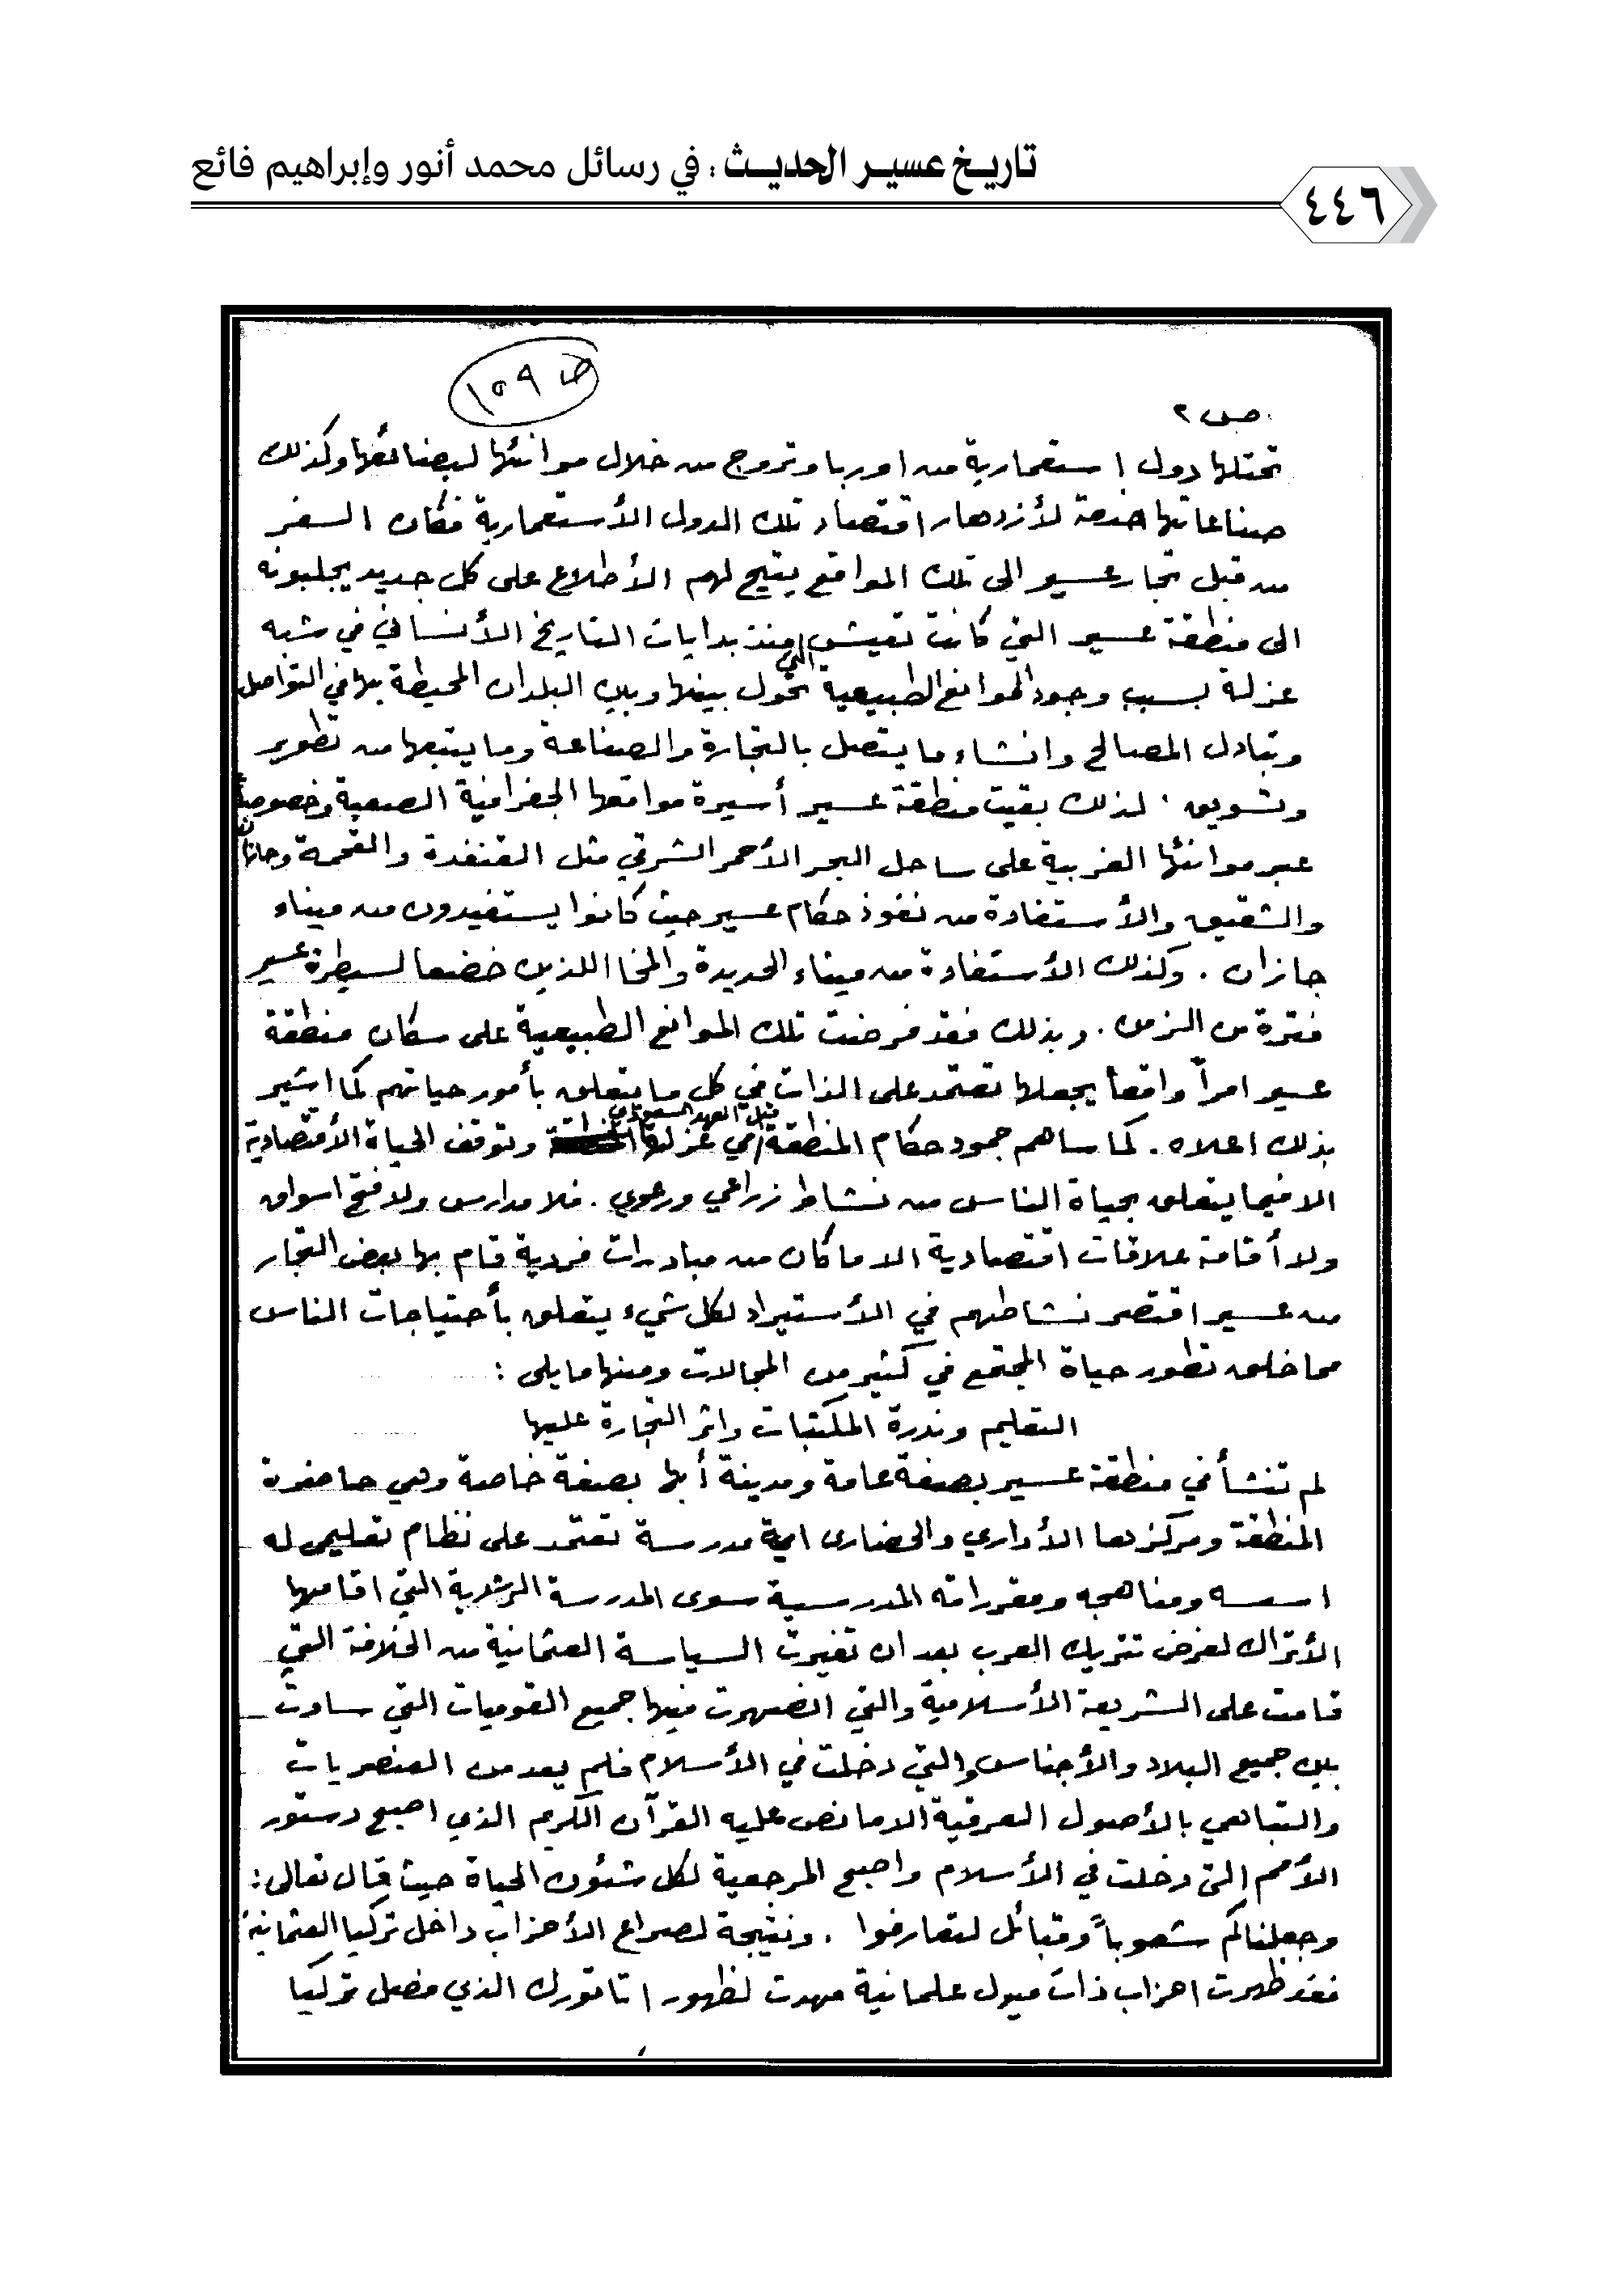 تاريخ عسير الحديث : في رسائل محمد أنور وإبراهيم فائع
٤٤٦
ص ١٥٩
ص ٢
تحتلها دول استعمارية من اوربا وتروج من خلال موانئها لبضائعها وكذلك
صناعاتها خدمة لأزدهار اقتصاد تلك الدول الأستعمارية فكان السفر
من قبل تجار عسير الى تلك المواقع يتيح لهم الأطلاع على كل جديد يجلبونه
الى منطقة عسير التي كانت تعيش منذ بدايات التاريخ الأنساني في شبه
عزلة بسبب وجود الموانع الطبيعية التي تحول بينها وبين البلدان المحيطة بها في التواصل
وتبادل المصالح وانشاء ما يتصل بالتجارة والصناعة وما يتبعها من تطوير
وتسويق . لذلك بقيت منطقة عسير أسيرة مواقعها الجغرافية الصعبة وخصوصاً
عبر موانئها الغربية على ساحل البحر الأحمر الشرقي مثل القنفدة والقحمة
والشقيق والأستفادة من نفوذ حكام عسير حيث كانوا يستفيدون من ميناء
جازان . وكذلك الأستفادة من ميناء الحديدة والمخا اللذين خضعا لسيطرة عسير
فترة من الزمن . وبذلك فقد فرضت تلك الموانع الطبيعية على سكان منطقة
عسير امراً واقعاً يجعلها تعتمد على الذات في كل ما يتعلق بأمور حياتهم كما اشير
بذلك اعلاه . كما ساهم جمود حكام المنطقة قبل العهد السعودي في عزلتها وتوقف الحياة الأقتصادية
الا فيما يتعلق بحياة الناس من نشاط زراعي ورعوي . فلا مدارس ولا فتح اسواق
ولا أقامة علاقات اقتصادية الا ما كان من مبادرات فردية قام بها بعض التجار
من عسير اقتصر نشاطهم في الأستيراد لكل شيء يتعلق بأحتياجات الناس
مما خلق تطور حياة المجتمع في كثير من المجالات ومنها ما يلى :
التعليم وندرة المكتبات واثر التجارة عليها
لم تنشأ في منطقة عسير بصفة عامة ومدينة أبها بصفة خاصة وهي حاضرة
المنطقة ومركزها الأداري والحضارى اية مدرسة تعتمد على نظام تعليمى له
اسسه ومناهجه ومقرراته المدرسية سوى المدرسة الرشدية التي اقامها
الأتراك لغرض تتريك العرب بعد ان تغيرت السياسة العثمانية من الخلافة التي
قامت على الشريعة الأسلامية والتي انصهرت فيها جميع القوميات التي سادت
بين جميع البلاد والأجناس والتي دخلت في الأسلام فلم يعد من العنصريات
والتباهي بالأصول العرقية الا ما نص عليه القرآن الكريم الذي اصبح دستور
الأمم التى دخلت في الأسلام واصبح المرجعية لكل شئون الحياة حيث قال تعالى :
وجعلناكم شعوباً وقبائل لتعارفوا . ونتيجة لصراع الأحزاب داخل تركيا العثمانية
فقد ظهرت احزاب ذات ميول علمانية مهدت لظهور اتاتورك الذي فصل تركيا